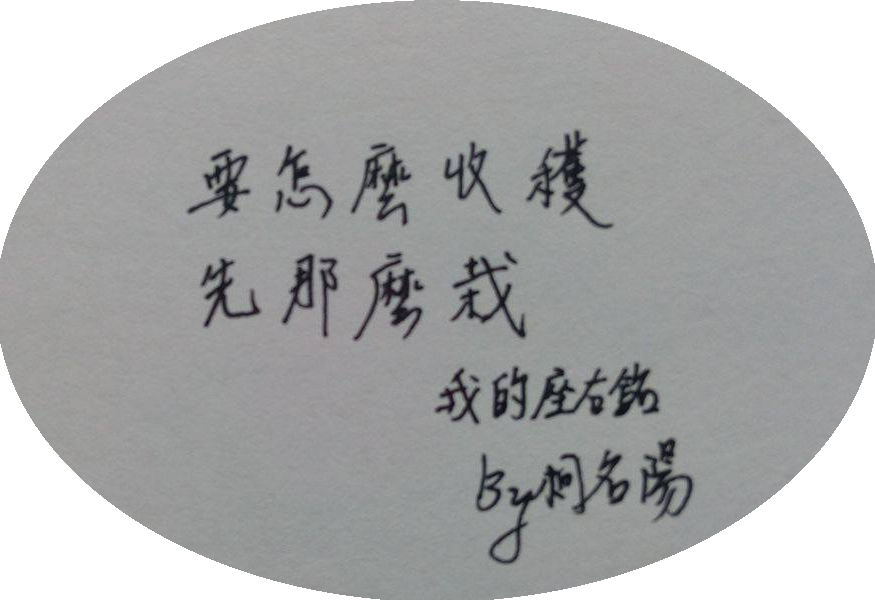 要怎麼收穫
先那麼栽
我的座右銘
By 桐名陽